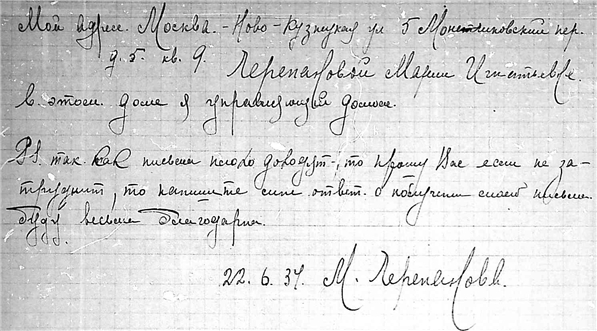 Мой адрес. Москва. - Ново-Кузнецкая ул 5 Монетчиковский пер.
д. 5. кв. 9. Марии Игнатьевне.
В этом доме я управляющий домом.
PS. так как письма плохо доходят, то прошу Вас если не за-
труднит, то напишите мне ответ. о получении моего письма.
буду весьма благодарна.
22. 6. 37. М.